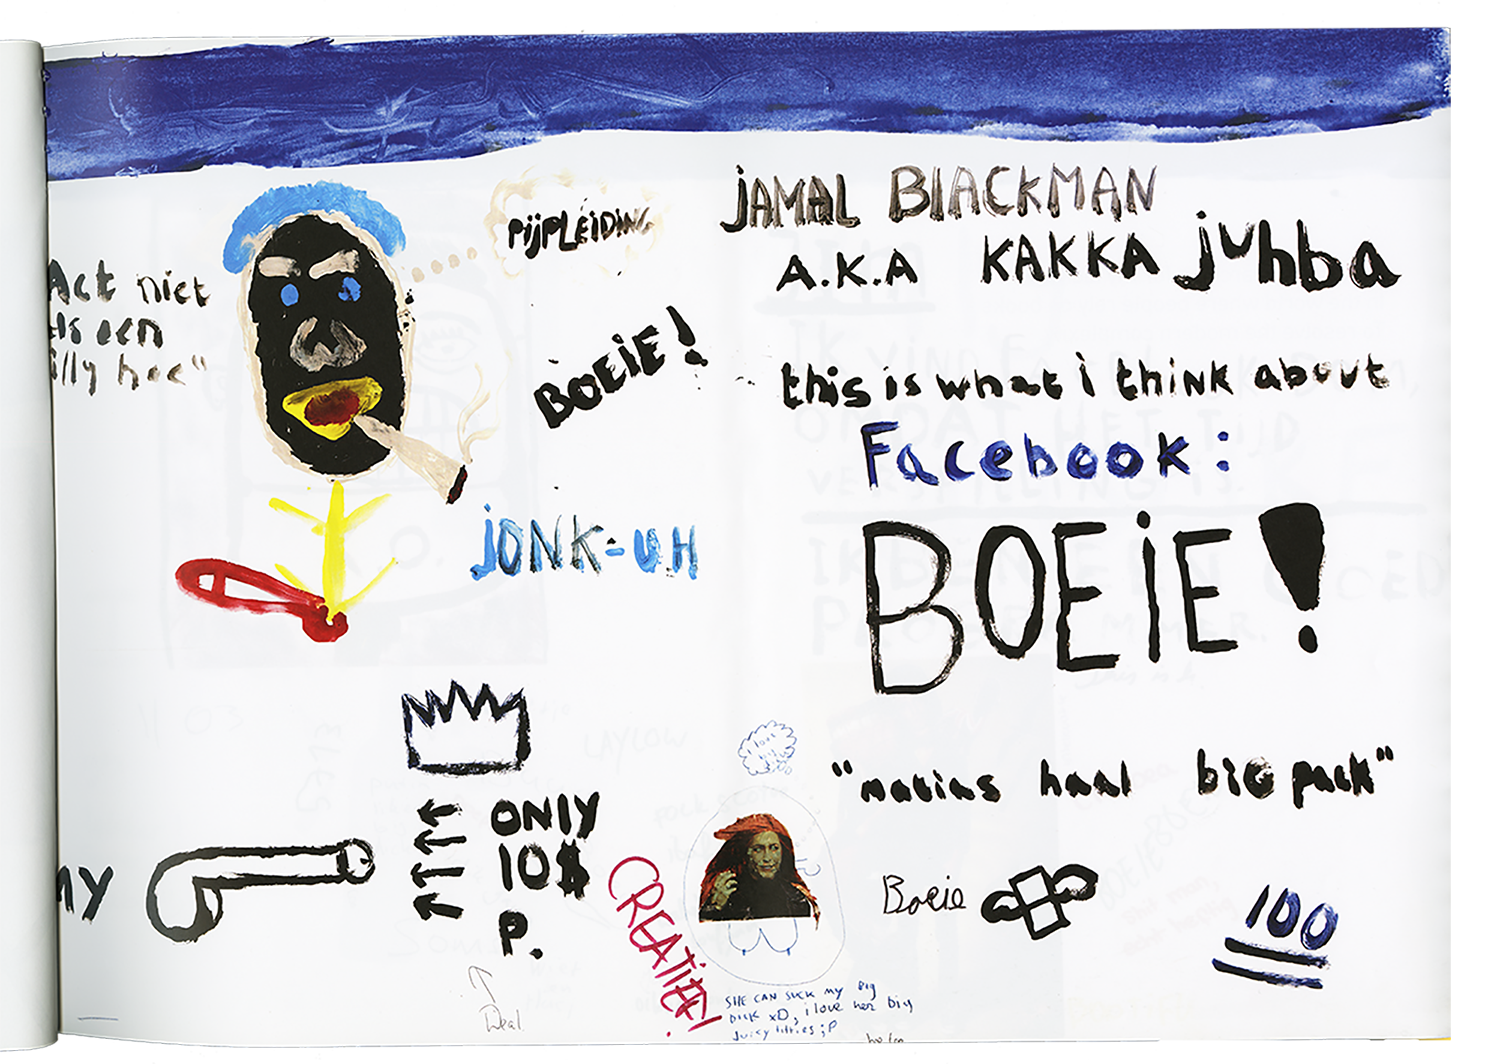 PIJPLEIDING
Act niet
als een
silly hoe"
BOEIE!
JONK=UH
JAMAL BLACKMAN
A.K.A KAKKA juhba
this is what i think about
Facebook:
BOEIE!
"matias haal big pack"
MY
ONLY
10$
P.
Deal
CREATIEF!
i love
SHE CAN SUCK MY BIG
DICK XD, i love her big
Juicy titties ;P
Boeie
100